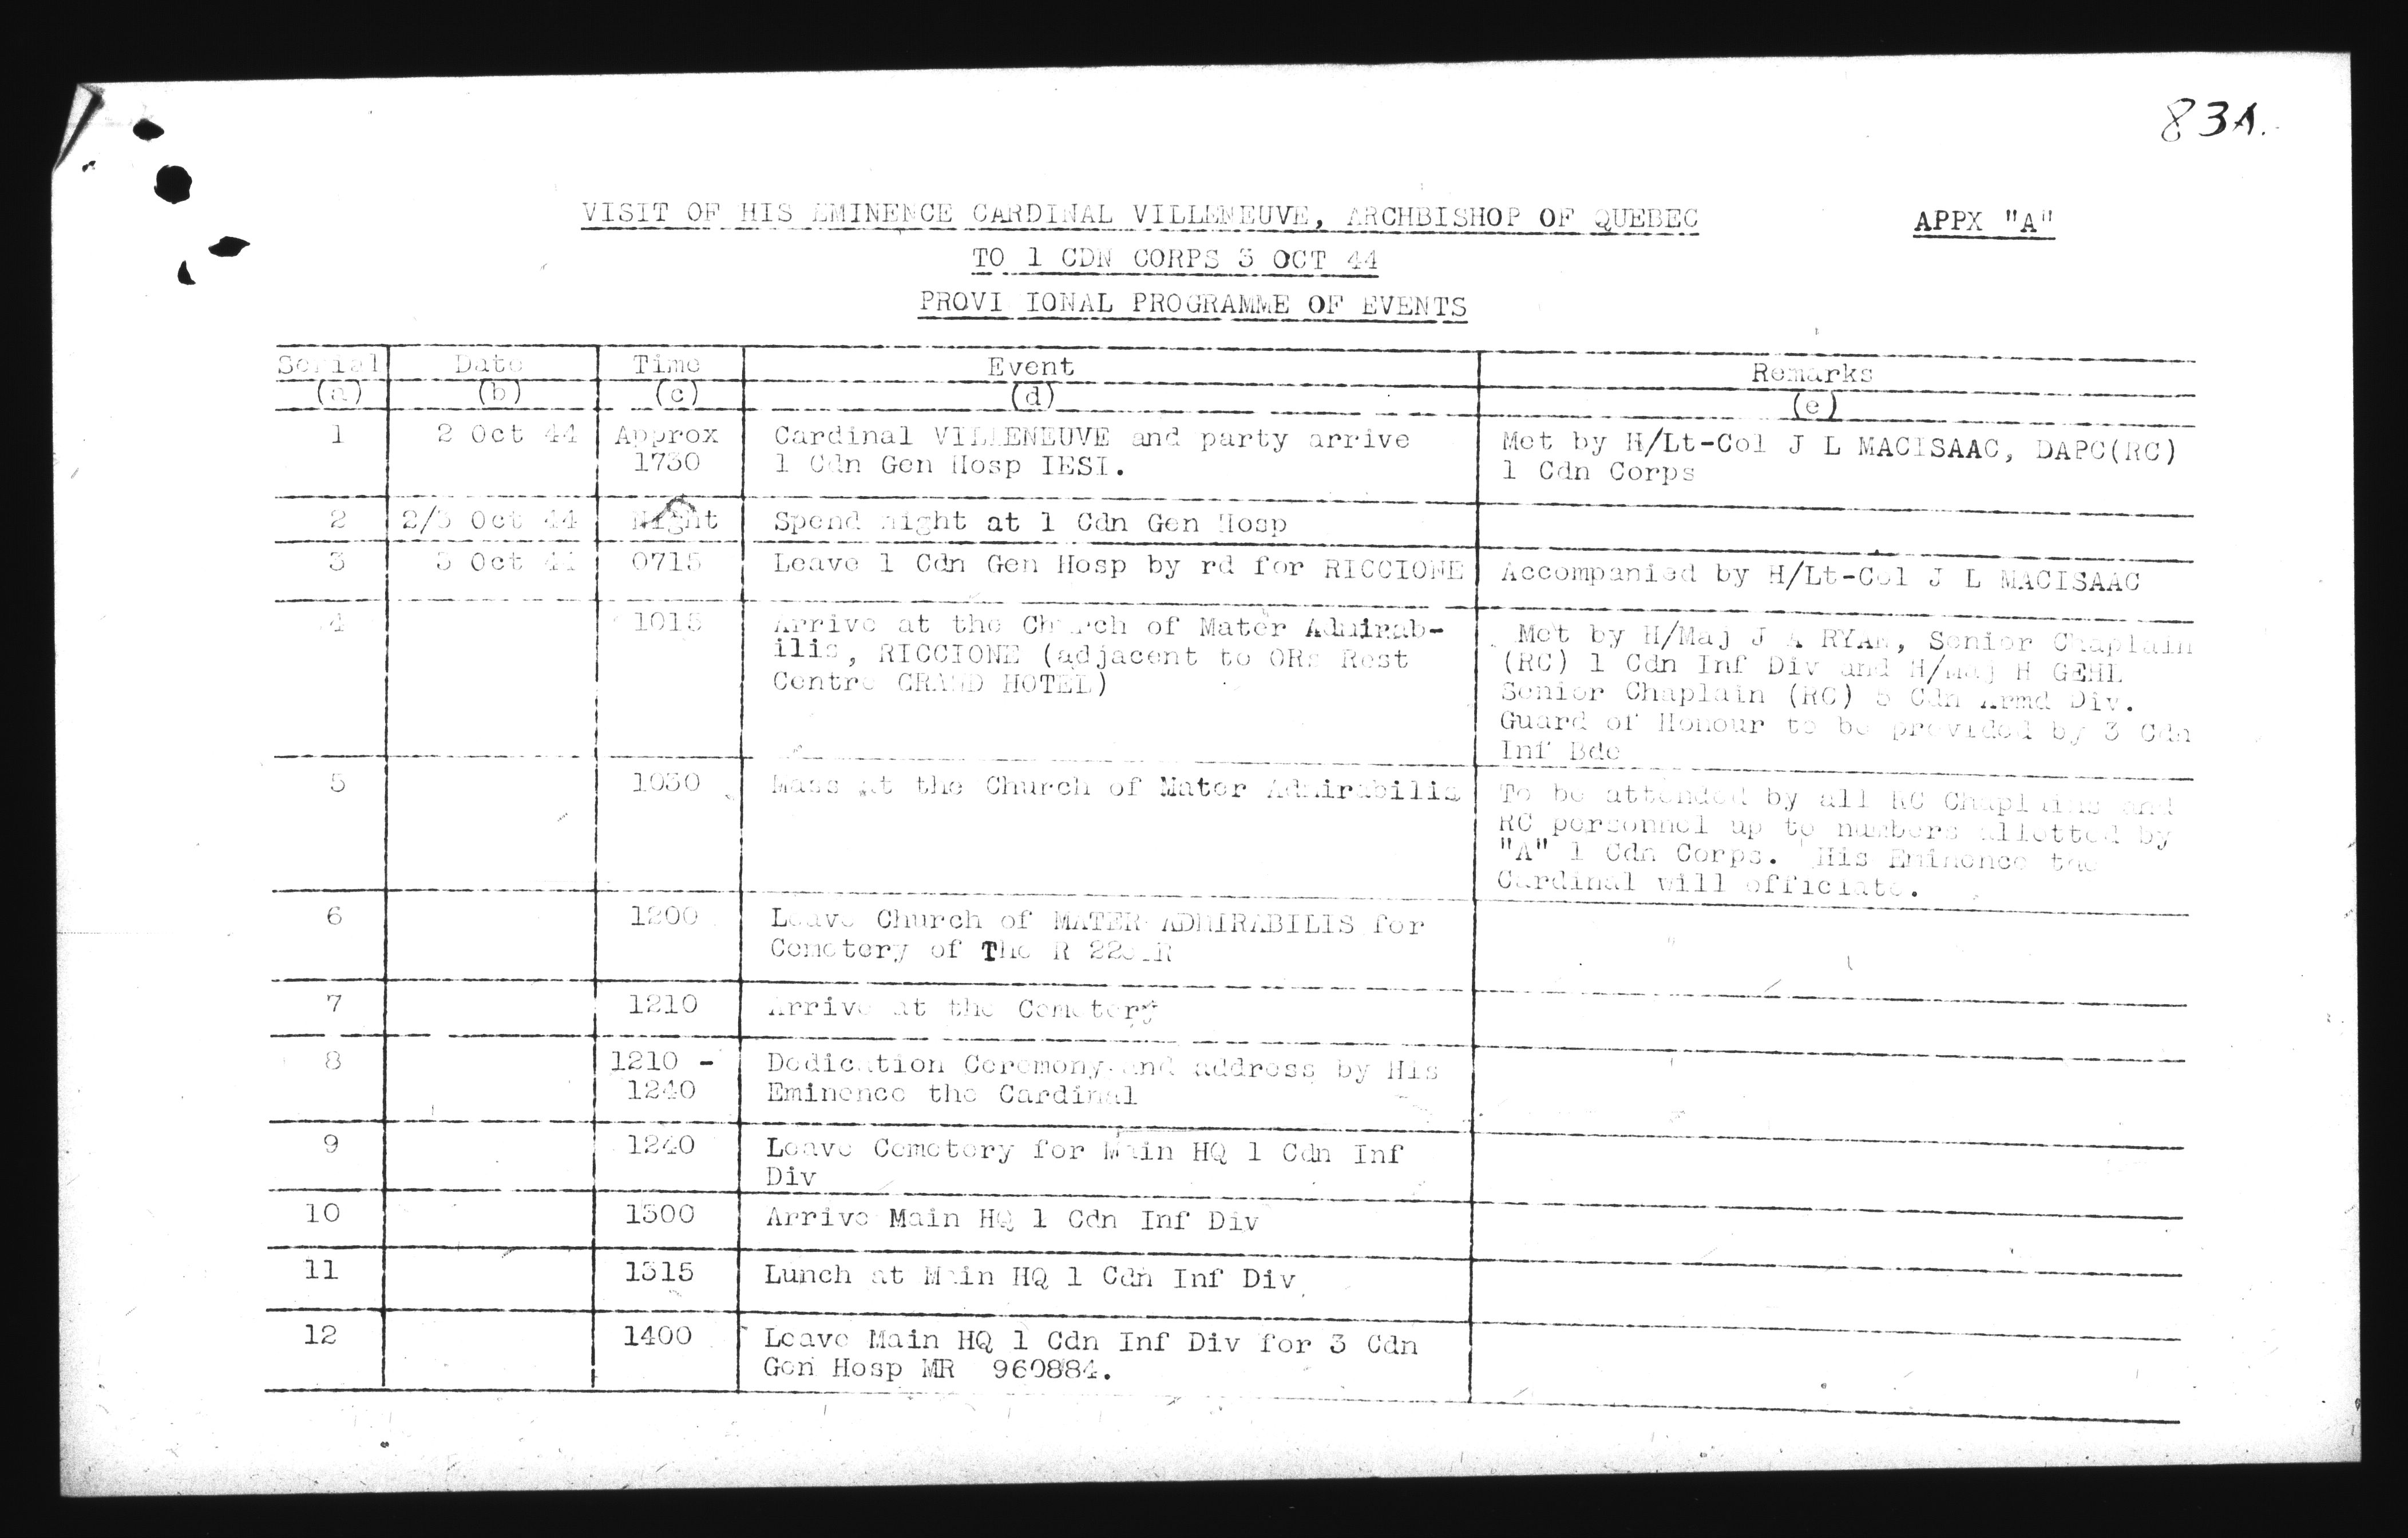 83A.
VISIT OF HIS EMINENCE CARDINAL VILLENEUVE, ARCHBISHOP OF QUEBEC
APPX "A"
TO 1 CDN CORPS 3 OCT 44
PROVI IONAL PROGRAMME OF EVENTS
Serial Date Time Event Remarks
(a) (b) (c) (d) (e)
1 2 Oct 44 Approx Cardinal VILLENEUVE and party arrive Met by H/Lt-Col J L MACISAAC, DAPC(RC)
1730 1 Cdn Gen Hosp IESI. 1 Cdn Corps
2 2/3 Oct 44 Night Spend night at 1 Cdn Gen Hosp
3 3 Oct 44 0715 Leave 1 Cdn Gen Hosp by rd for RICCIONE Accompanied by H/Lt-Col J L MACISAAC
4 1015 Arrive at the Church of Mater Admirab- Met by H/Maj J A RYAN, Senior Chaplain
ilis, RICCIONE (adjacent to ORs Rest (RC) 1 Cdn Inf Div and H/Maj H GEHL
Centre GRAND HOTEL) Senior Chaplain (RC) 5 Cdn Armd Div.
Guard of Honour to be provided by 3 Cdn
Inf Bde
5 1030 Mass at the Church of Mater Admirabilis To be attended by all RC Chaplains and
RC personnel up to numbers allotted by
"A" 1 Cdn Corps. His Eminence the
Cardinal will officiate.
6 1200 Leave Church of MATER ADMIRABILIS for
Cemetery of The R 22e R
7 1210 Arrive at the Cemetery
8 1210 - Dedication Ceremony and address by His
1240 Eminence the Cardinal
9 1240 Leave Cemetery for Main HQ 1 Cdn Inf
Div
10 1300 Arrive Main HQ 1 Cdn Inf Div
11 1315 Lunch at Main HQ 1 Cdn Inf Div
12 1400 Leave Main HQ 1 Cdn Inf Div for 3 Cdn
Gen Hosp MR 960884.